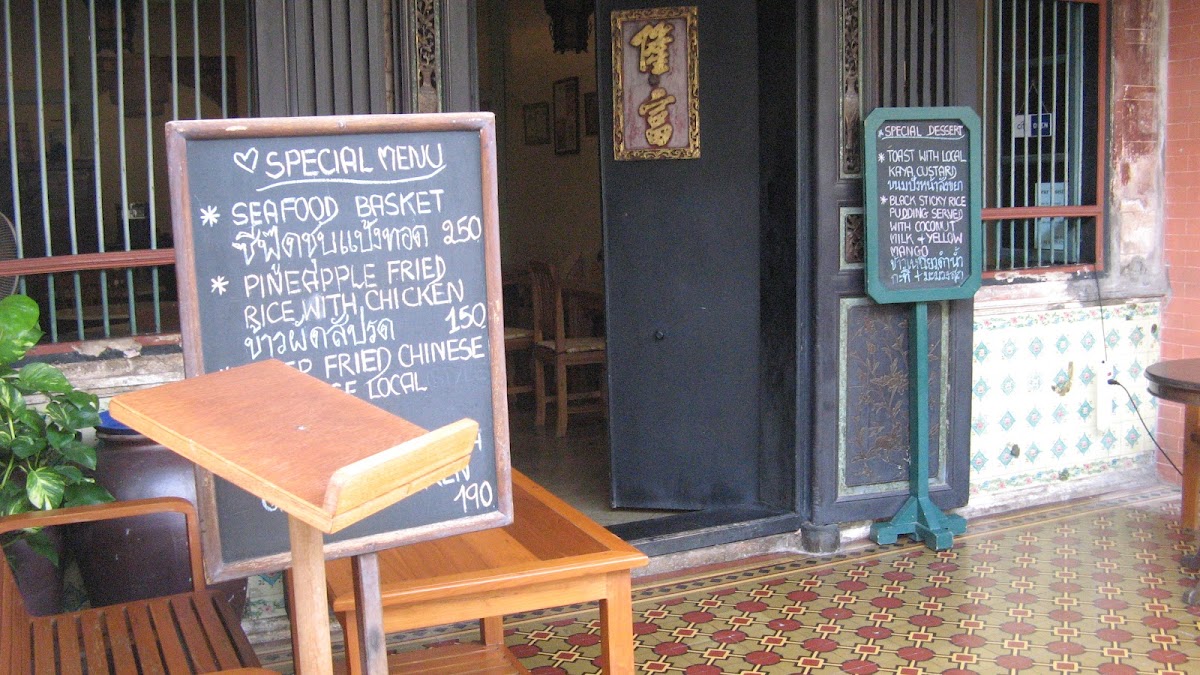 SPECIAL MENU
* SEAFOOD BASKET
ซีฟู๊ดชุบแป้งทอด 250
* PINEAPPLE FRIED
RICE WITH CHICKEN
ข้าวผัดสัปรด 150
FRIED CHINESE
LOCAL
190
隆
富
SPECIAL DESSERT
* TOAST WITH LOCAL
KAYA CUSTARD
ขนมปังหน้าสังขยา
* BLACK STICKY RICE
PUDDING SERVED
WITH COCONUT
MILK & YELLOW
MANGO
ข้าวเหนียวดำน้ำ
กะทิ + มะม่วงสุก